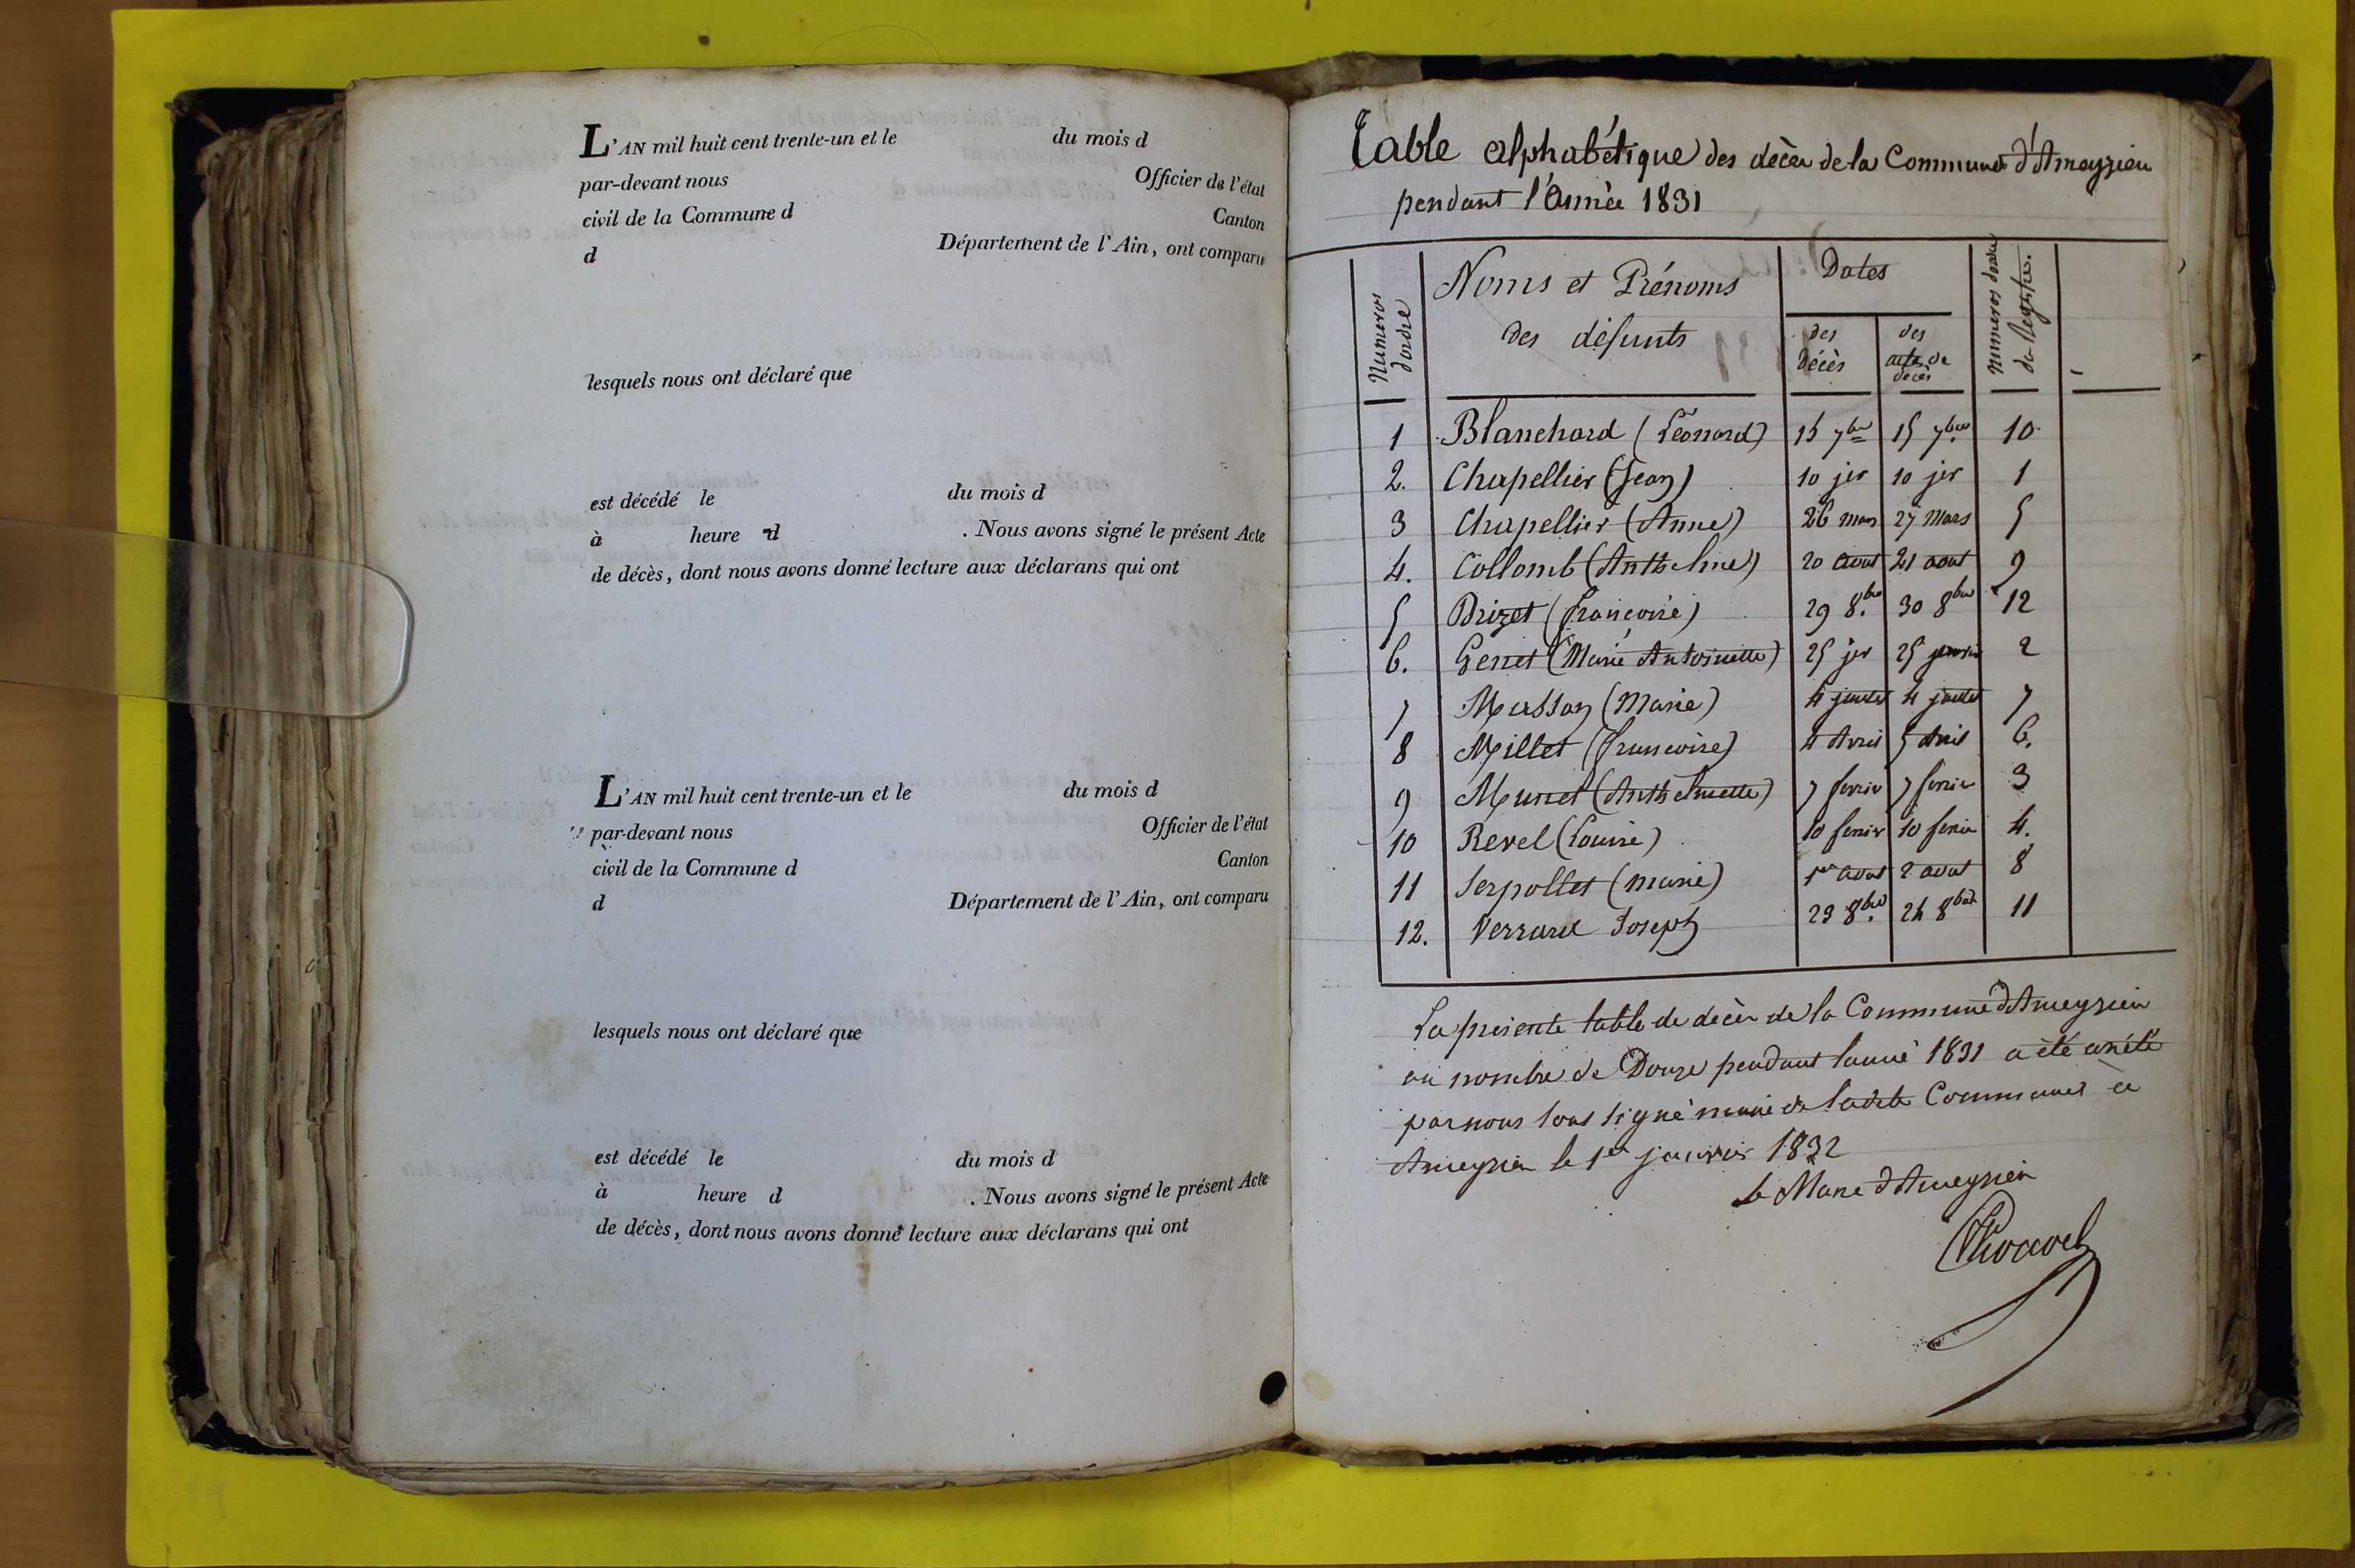 L'AN mil huit cent trente-un et le du mois d
par-devant nous Officier de l'état
civil de la Commune d Canton
d Département de l'Ain, ont comparu
lesquels nous ont déclaré que
est décédé le du mois d
à heure d . Nous avons signé le présent Acte
de décès, dont nous avons donné lecture aux déclarans qui ont
L'AN mil huit cent trente-un et le du mois d
par-devant nous Officier de l'état
civil de la Commune d Canton
d Département de l'Ain, ont comparu
lesquels nous ont déclaré que
est décédé le du mois d
à heure d . Nous avons signé le présent Acte
de décès, dont nous avons donné lecture aux déclarans qui ont
Table alphabétique des décès de la Commune d'Ameyzieu
pendant l'Année 1831
Numeros dordre
Noms et Prénoms
des défunts
Dates
des décès
des actes de décès
Numeros dordre du Registre.
1 Blanchard (Léonard) 15 7bre 15 7bre 10
2. Chapellier (Jean) 10 jer 10 jer 1
3 Chapellier (Anne) 26 mars 27 Mars 5
4. Collomb (Anthelme) 20 aout 21 aout 9
5 Drizet (francoise) 29 8.bre 30 8bre 12
6. Genet (Marie Antoinette) 25 jer 25 janvier 2
7 Masson (Marie) 4 juillet 4 juillet 7
8 Millet (francoise) 4 Avril 5 Avril 6.
9 Munet (Anthelmette) 7 fevrier 7 fevrier 3
10 Revel (Louise) 10 fevrier 10 fevrier 4.
11 Serpollet (marie) 1er aout 2 aout 8
12. Verraux Joseph 23 8.bre 24 8bre 11
La présente table de décès de la Commune d'Ameyzieu
au nombre de Douze pendant l'année 1831 a été arrêté
par nous sous signé maire de ladite Commune à
Ameyzieu le 1er janvier 1832
Le Maire d'Ameyzieu